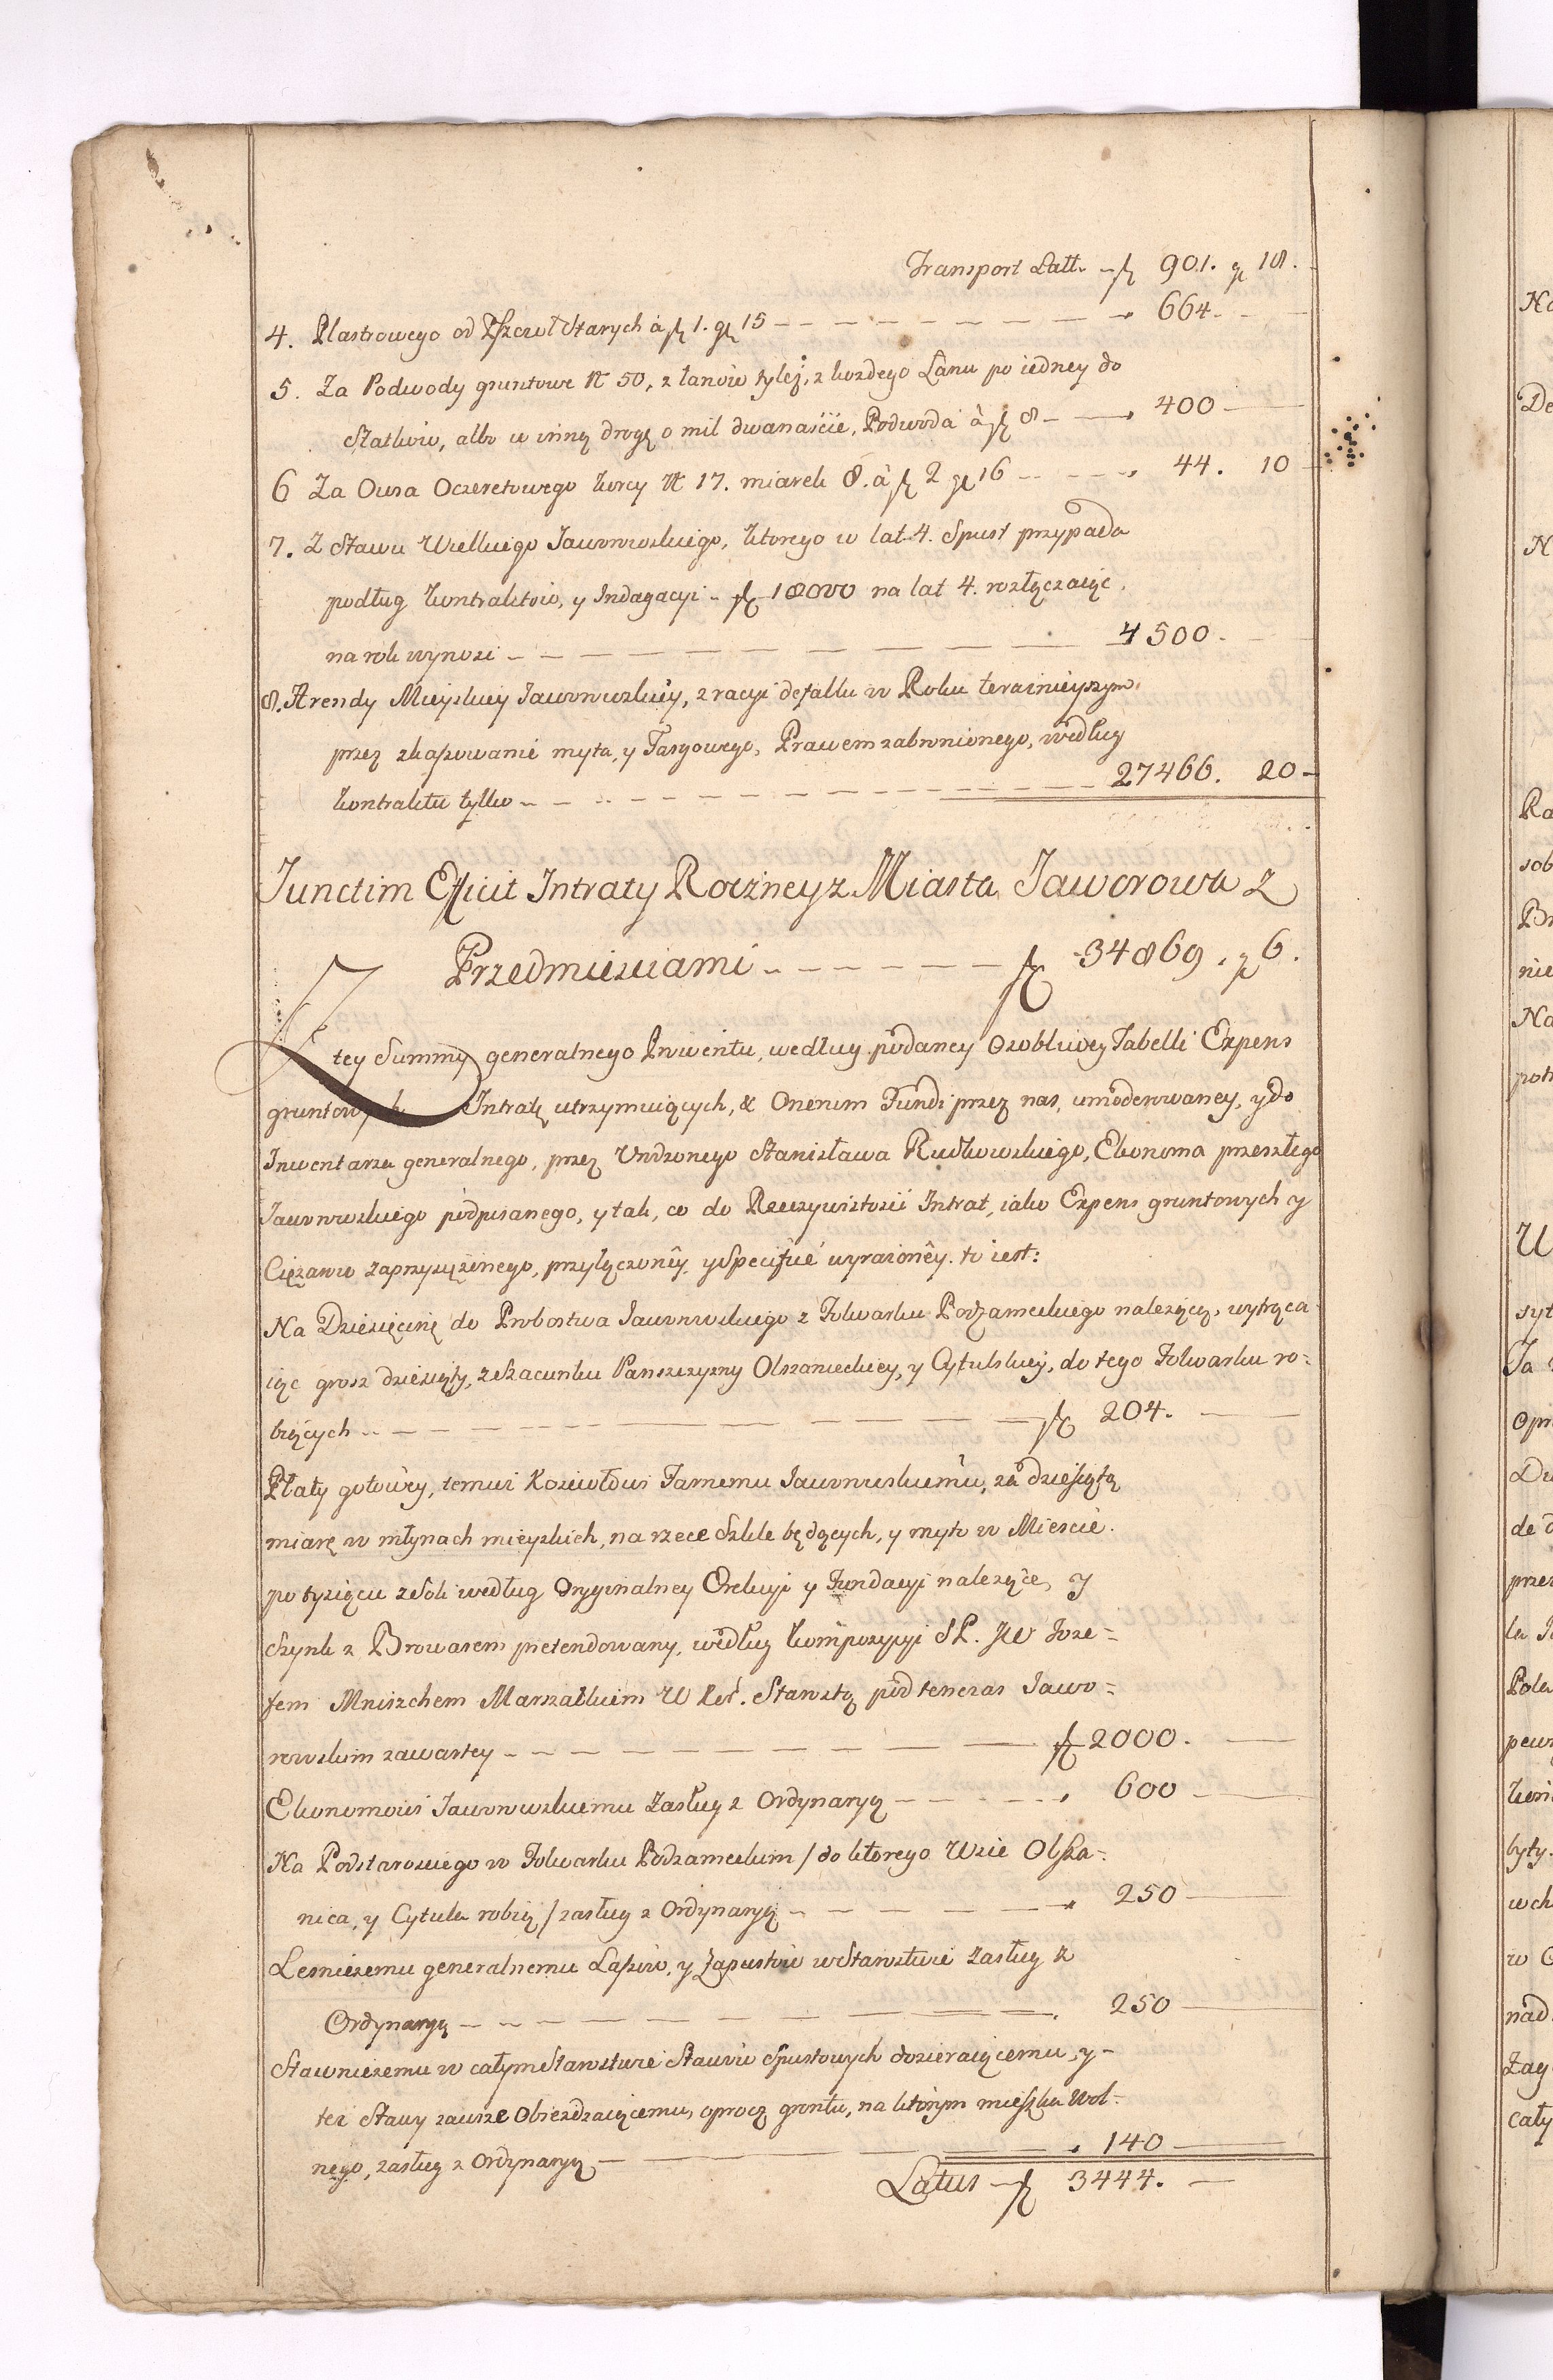 Transport Latt. fl 901. g 18.
4. Plastrowego od Pszczoł Starych à fl 1. gr 15 — 664.
5. Za Podwody gruntowe N 50, z łanów tylej, z kożdego Łanu po iedney do
Statków, albo w inną drogę o mil dwanaście, Podwoda à fl 8 — 400
6 Za Owsa Oczeretowego korcy N 17. miarek 8. à fl 2 gr 16 — 44. 10
7. Z Stawu Wielkiego Jaworowskiego, ktorego w lat 4. Spust przypada
podług kontraktów, y Indagacyi fl 18000 na lat 4. rozłączaiąc
na rok wynosi — 4500.
8. Arendy Mieyskiey Jaworowskiey, z racyi defalku w Roku teraznieyszym
przez skasowanie myta, y Targowego, Prawem zabronionego, według
kontraktu tylko — 27466. 20
Junctim Efficit Intraty Roczney z Miasta Jaworowa z
Przedmiesciami — fl 34869. g 6.
Z tey Summy generalnego Prowentu, według podaney Osobliwey Tabelli Expens
gruntowych Intratę utrzymuiących, & Onerum Fundi przez nas, umoderowaney, y do
Inwentarza generalnego, przez Urodzonego Stanisława Rudkowskiego, Ekonoma przeszłego
Jaworowskiego podpisanego, y tak, co do Rzeczywistosci Intrat, iako Expens gruntowych y
Ciężarow zaprzysiężonego, przyłączoney, y Specifice wyrażoney. to iest:
Na Dziesięcinę do Probostwa Jaworowskiego z Folwarku Podzameckiego należącą, wytrąca
iąc grosz dziesiąty, z Szacunku Panszczyzny Olszanieckiey, y Cytulskiey, do tego Folwarku ro-
biących — fl 204.
Płaty gotowey, temuż Kosciołowi Farnemu Jaworowskiemu, za dziesiątą
miarę w młynach mieyskich, na rzece Szkle będących, y myto w Miescie
po tysiącu z Soli według Oryginalney Erekcyi y Fundacyi należące, y
Szynk z Browarem pretendowany, według kompozycyi SP. JW Joze-
fem Mniszchem Marszałkiem W Kor. Starostą pod tenczas Jawo-
rowskim zawartey — fl 2000.
Ekonomowi Jaworowskiemu Zasług z Ordynaryą — 600
Na Podstarosciego w Folwarku Podzameckim / do ktorego Wsie Olsza-
nica, y Cytula robią / zasług z Ordynaryą — 250
Lesniczemu generalnemu Lasow, y Zapustow w Starostwie Zasług z
Ordynaryą — 250
Stawniczemu w całym Starostwie Stawow Spustowych dozieraiącemu, y
też Stawy zawsze Obieżdzaiącemu, oprocz gruntu, na ktorym mieszka Wol-
nego, zasług z Ordynaryą — 140
Latus — fl 3444.